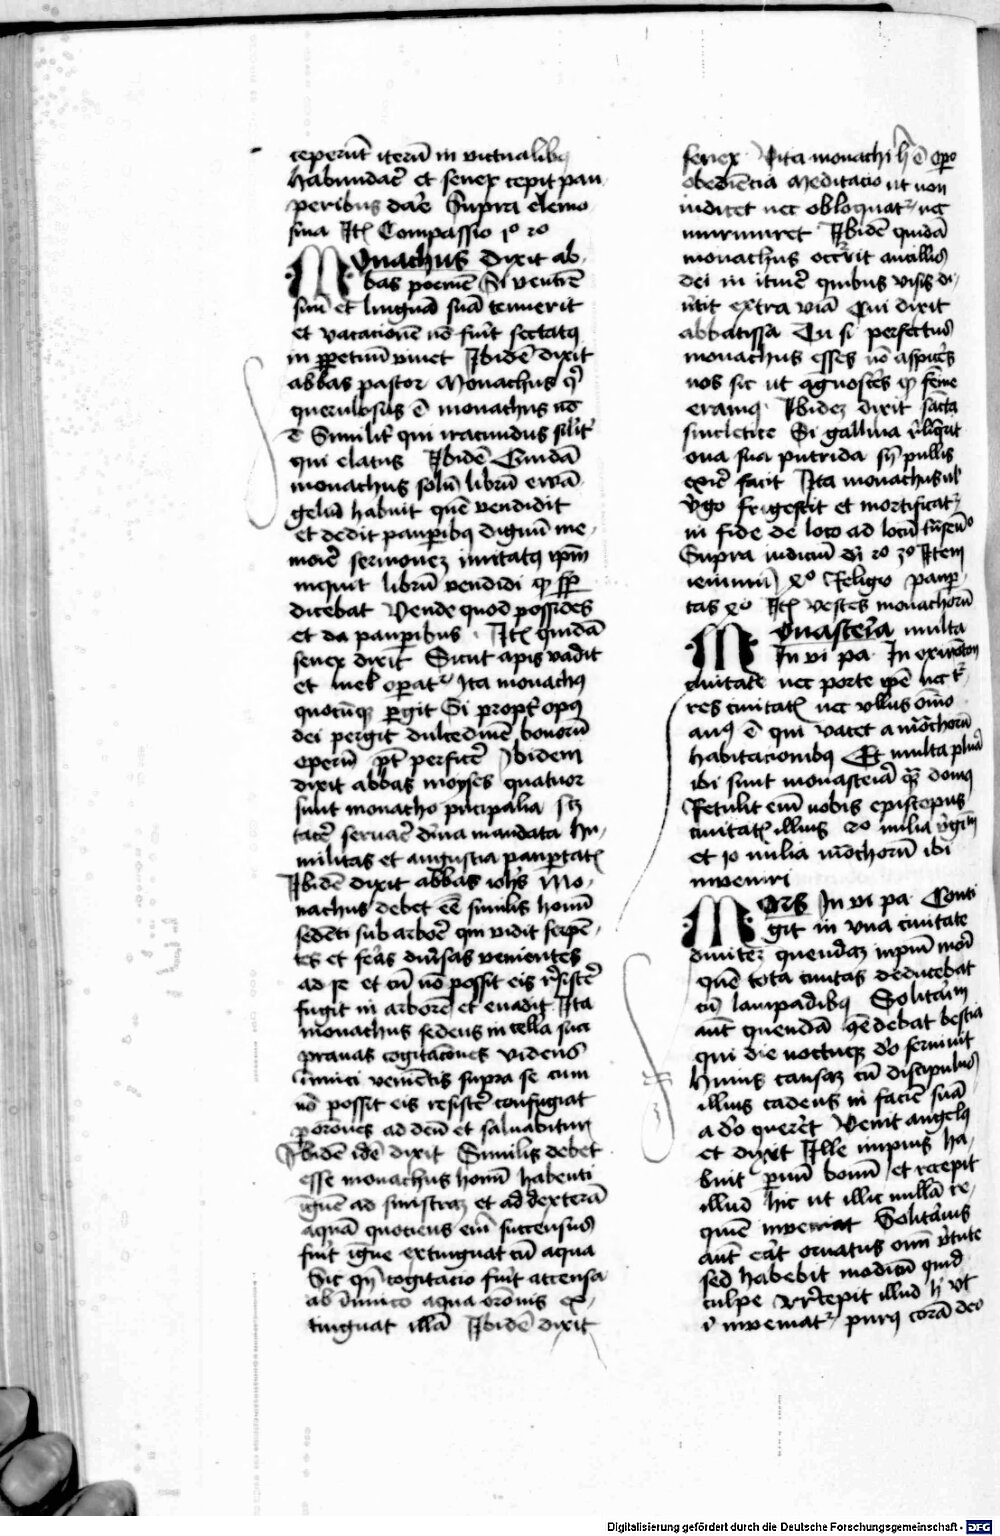 ceperūt iterū in victualibꝰ
habundar̄ et senex cepit pau
peribus dar̄e Supra elemo
sina Itꝫ Compassio 1º 20
Monachus dixit ab
bas poemē Si ventrē
suū et linguā suā tenuerit
et vacacionē nō fūit sectatꝰ
in ꝑpetuū viuet Ibidē dixit
abbas pastor Monachus qͥ
querulosus ē monachus nō
ē Similit̄ qui iracundus sil̄it̄
qui elatus Ibidē Quidā
monachus solū librū ewā
geliū habuit quē vendidit
et dedit pauꝑibꝰ dignū me
morē sermonez imitatꝰ ip̄m
inquit librū vendidi qͥ sꝑ
dicebat Vende quod possides
et da pauꝑibus Itꝫ quidā
senex dixit Sicut apis vadit
et mel oꝑatͬ Ita monachꝰ
quocūqꝫ ꝑgit Si propt̄ opꝰ
dei pergit dulcedinē bonorū
operū pt̄ perficēr Ibidem
dixit abbas moyses quatuor
sunt monacho pͥncipalia scꝫ
tacēr seruar̄e diuina mandata hu
militas et angustia pauꝑtatꝫ
Ibidē dixit abbas ioh̄s Mo
nachus debet eē similis homī
sedēti sub arbor̄e qui vidit serpē
tes et fēas diūsas venientes
ad se et cū nō possit eis r̄sistēr
fugit in arborē et euadit Ita
monachus sedens in cella sua
prauas cogitac̄ones videns
inimici venientis supra se cum
nō possit eis resistēr confugiat
ꝑ or̄ones ad deū et saluabitur
Ibidē idē dixit Similis debet
esse monachus homī habenti
ignē ad sinistrā et ad dexterā
aquā quociens em̄ succensus
fūit igne extinguat cū aqua
Sic qn̄ cogitacio fūit accensa
ab inimico aqua or̄onis ex
tinguat illā Ibidē dixit
senex Vita monachi h̄ ē opͦ
obediencia meditacio ut non
iudicet nec obloquatͬ nec
murmuret Ibidē quidā
monachus occurrit ancillis
dei in itiner̄e quibus visis di
uertit extra viā Cui dixit
abbatissa Tu si perfectus
monachus esses nō aspicēs
nos sic ut agnoscēs qꝫ fēine
eramꝰ Ibidez dixit sācta
sincletice Si gallina reliq̄rit
oua sua putrida sn̄ pullis
exir̄e facit Ita monachus ul̄
v̄go frigescit et mortificatͬ
in fide de loco ad locū trāseūdo
Supra iudiciū dei 2º 3º Item
ieiuniū xº Religio pauꝑ
tas xº Itꝫ vestes monachorū
Monasteria multa
In vi pa In
ciuitate nec porte ip̄e nec t̄
res ciuitatꝫ nec vllus om̄o
angꝰ ē qui vacet a mōchorū
habitacionibꝰ Et multa plura
ibi sunt monasteria qͣꝫ domꝰ
Retulit em̄ nobis episcopus
ciuitatꝫ illius 20 milia v̄ginū
et 10 milia mōchorū ibi
inveniri
Mors In vi pa Conti
git in vna ciuitate
diuitez quendaz impiū mori
quē tota ciuitas deducebat
cū lampadibꝰ Solitariū
aut̄ quendā comedebat bestia
qui die noctuqꝫ dō seruiuit
huius causaz cū discipulus
illius cadens in faciē suā
a dō querēt Venit angelꝰ
et dixit Ille impius ha
buit ꝑuū bonū et recepit
illud hic ut illic nullā re
quiē inveniat Solitarius
aut̄ erat ornatus omī v̄tute
sed habebit modicū quid
culpe recepit illud hͥ vt
inveniatͬ purꝰ corā deo
Digitalisierung gefördert durch die Deutsche Forschungsgemeinschaft - DFG